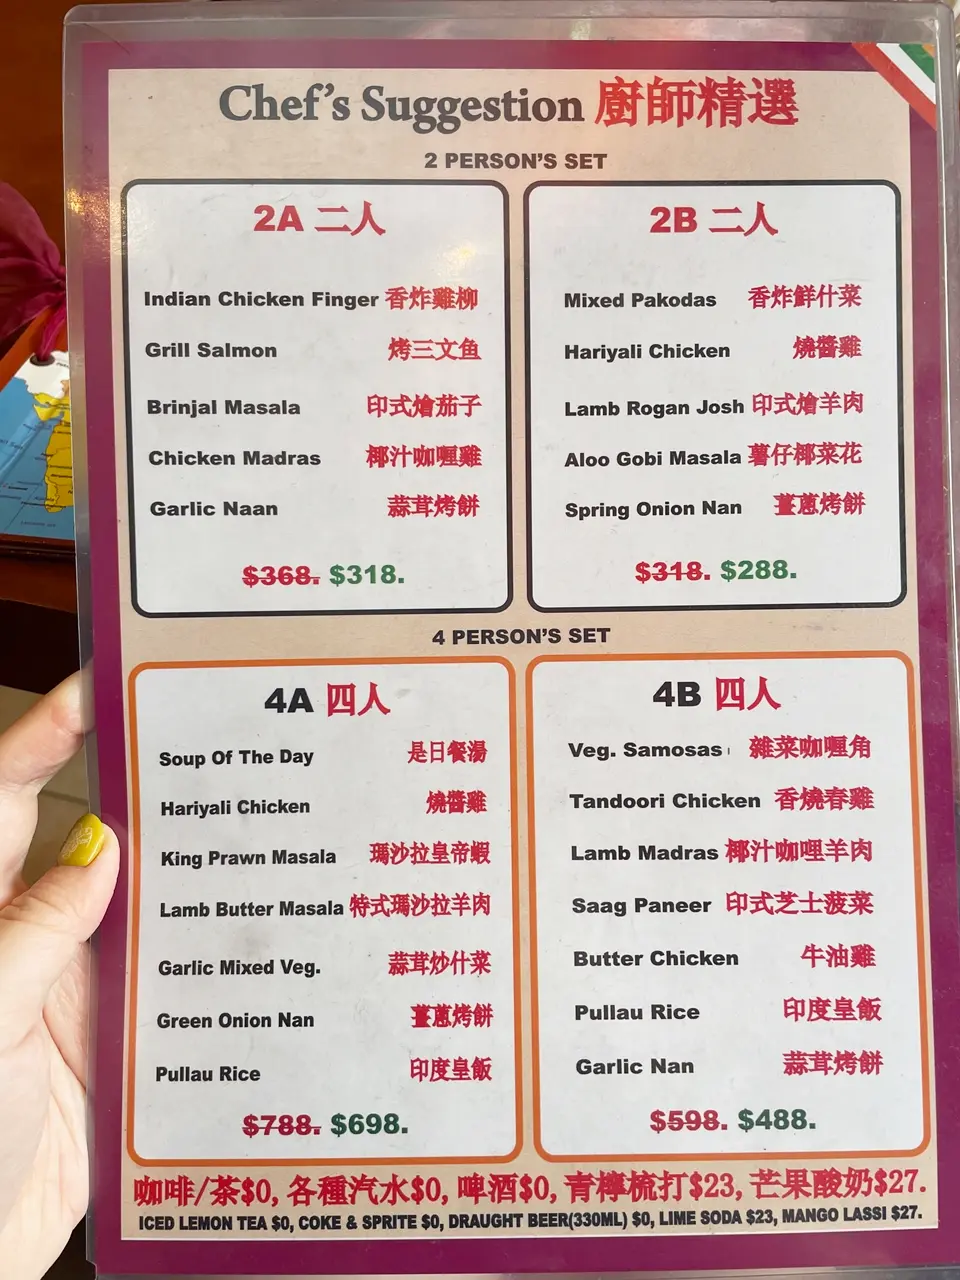 Chef's Suggestion 廚師精選
2 PERSON'S SET
2A 二人
Indian Chicken Finger 香炸雞柳
Grill Salmon 烤三文鱼
Brinjal Masala 印式燴茄子
Chicken Madras 椰汁咖喱雞
Garlic Naan 蒜茸烤餅
$368. $318.
2B 二人
Mixed Pakodas 香炸鮮什菜
Hariyali Chicken 燒醬雞
Lamb Rogan Josh 印式燴羊肉
Aloo Gobi Masala 薯仔椰菜花
Spring Onion Nan 薑蔥烤餅
$318. $288.
4 PERSON'S SET
4A 四人
Soup Of The Day 是日餐湯
Hariyali Chicken 燒醬雞
King Prawn Masala 瑪沙拉皇帝蝦
Lamb Butter Masala 特式瑪沙拉羊肉
Garlic Mixed Veg. 蒜茸炒什菜
Green Onion Nan 薑蔥烤餅
Pullau Rice 印度皇飯
$788. $698.
4B 四人
Veg. Samosas 雜菜咖喱角
Tandoori Chicken 香燒春雞
Lamb Madras 椰汁咖哩羊肉
Saag Paneer 印式芝士菠菜
Butter Chicken 牛油雞
Pullau Rice 印度皇飯
Garlic Nan 蒜茸烤餅
$598. $488.
咖啡/茶$0, 各種汽水$0, 啤酒$0, 青檸梳打$23, 芒果酸奶$27.
ICED LEMON TEA $0, COKE & SPRITE $0, DRAUGHT BEER(330ML) $0, LIME SODA $23, MANGO LASSI $27.